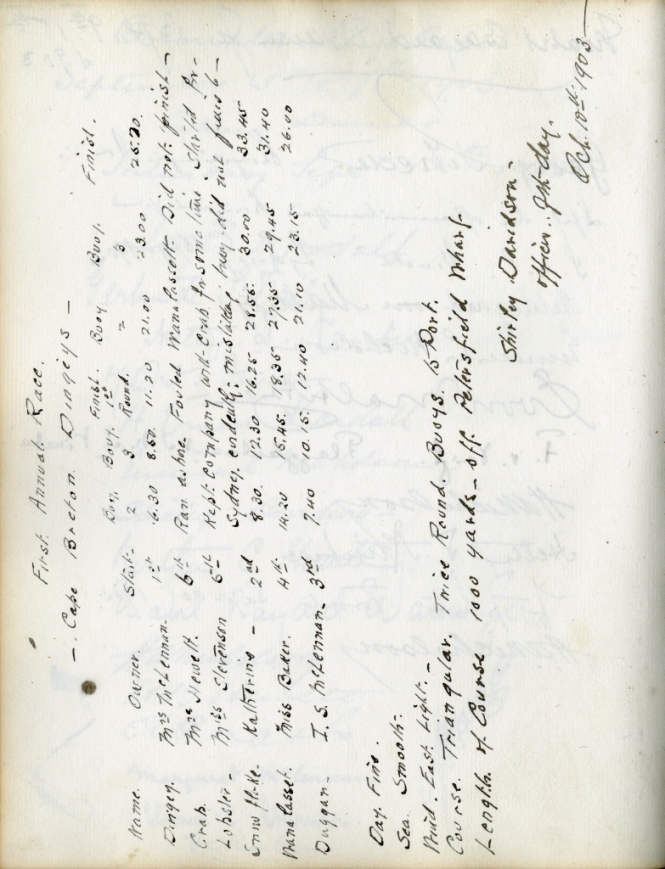 First Annual Race.
— Cape Breton Dingeys —
Name. Owner. Start. Buoy 2 Buoy. 3 Finish. 1st Round. Buoy 2 Buoy. 3 Finish.
Dingey. Mrs McLennan. 1st 6.30 8.50 11.20 21.00 23.00 25.20.
Crab. Mrs Hewett. 6th Ran ashore Fouled Manalassett. Did not finish —
Lobster — Miss Stevenson 5th Kept company with Crab for some time. Started for Sydney, evidently mistaking buoy did not finish —
Snow flake. Katherine — 2nd 8.30. 12.30 16.25 30.00 33.45
Manalasset. Miss Baker. 4th 14.20 15.45. 18.35 27.35 29.45 31.40
Duggan. I. S. McLennan. 3rd 7.40 10.15. 12.40 21.10 23.15 26.00
Day. Fine.
Sea. Smooth.
Wind. East. Light. —
Course. Triangular. Twice Round. Buoys to Port.
Length of Course 1000 yards — off Petersfield Wharf.
Shirley Davidson —
officer of the day.
Oct. 10th 1903 —